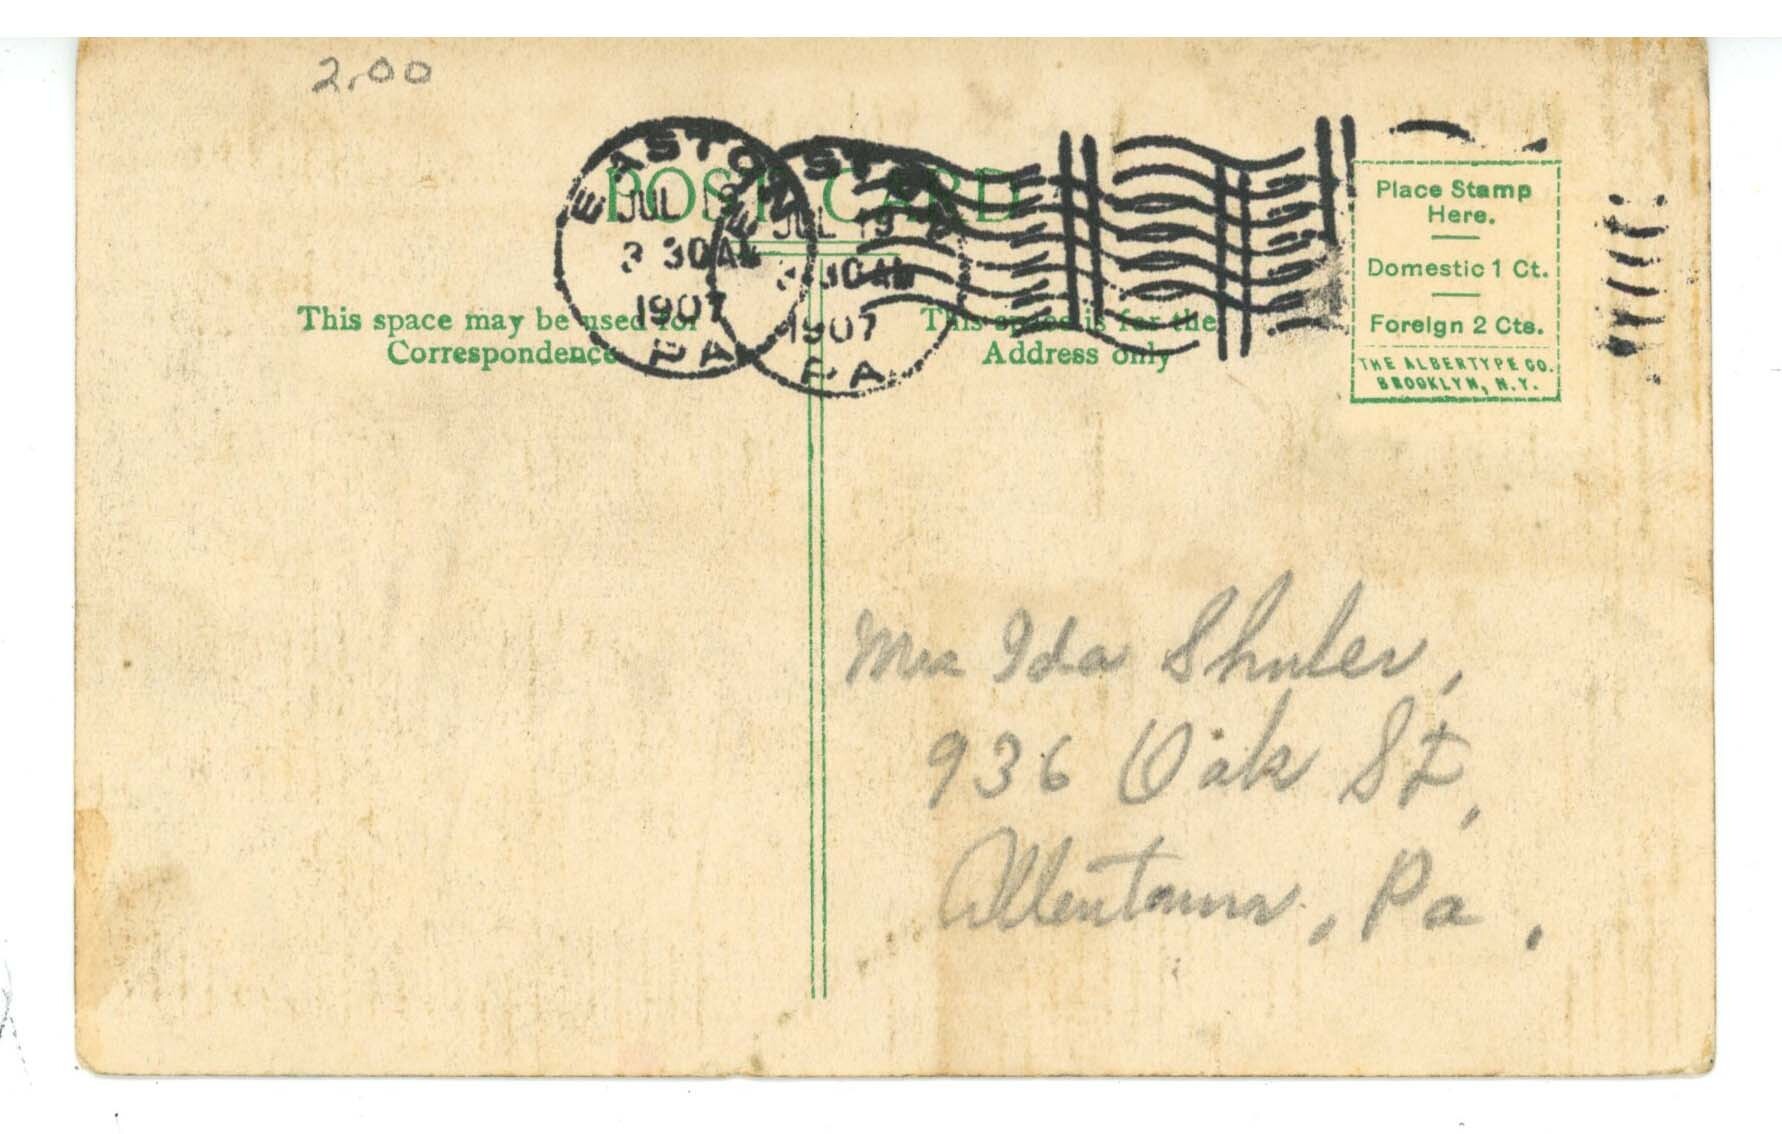 2.00
EASTON
JUL 19
3 30 AM
1907
PA
EASTON
JUL 19
3 30 AM
1907
PA
POST CARD
Place Stamp
Here.
Domestic 1 Ct.
Foreign 2 Cts.
THE ALBERTYPE CO.
BROOKLYN, N.Y.
This space may be used for
Correspondence
This space is for the
Address only
Mrs Ida Shuler,
936 Oak St,
Allentown, Pa.